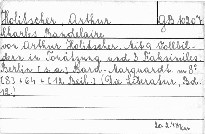 Holitscher, Arthur gB 10207
Charles Baudelaire
von Arthur Holitscher. Mit 9 Vollbil-
dern in Tonätzung und 3 Faksimiles
Berlin [s.a.] Bard-Marquardt m 8°
(8) + 64 + [12 Beil.] (Die Literatur, Bd.
12.)